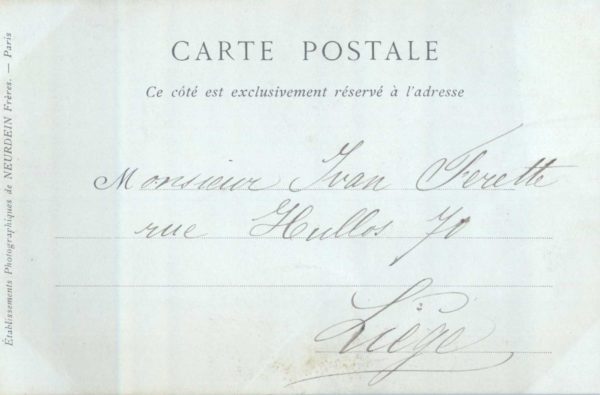 CARTE POSTALE
Ce côté est exclusivement réservé à l'adresse
Monsieur Ivan Ferette
rue Hullos 70
Liège
Établissements Photographiques de NEURDEIN Frères. — Paris